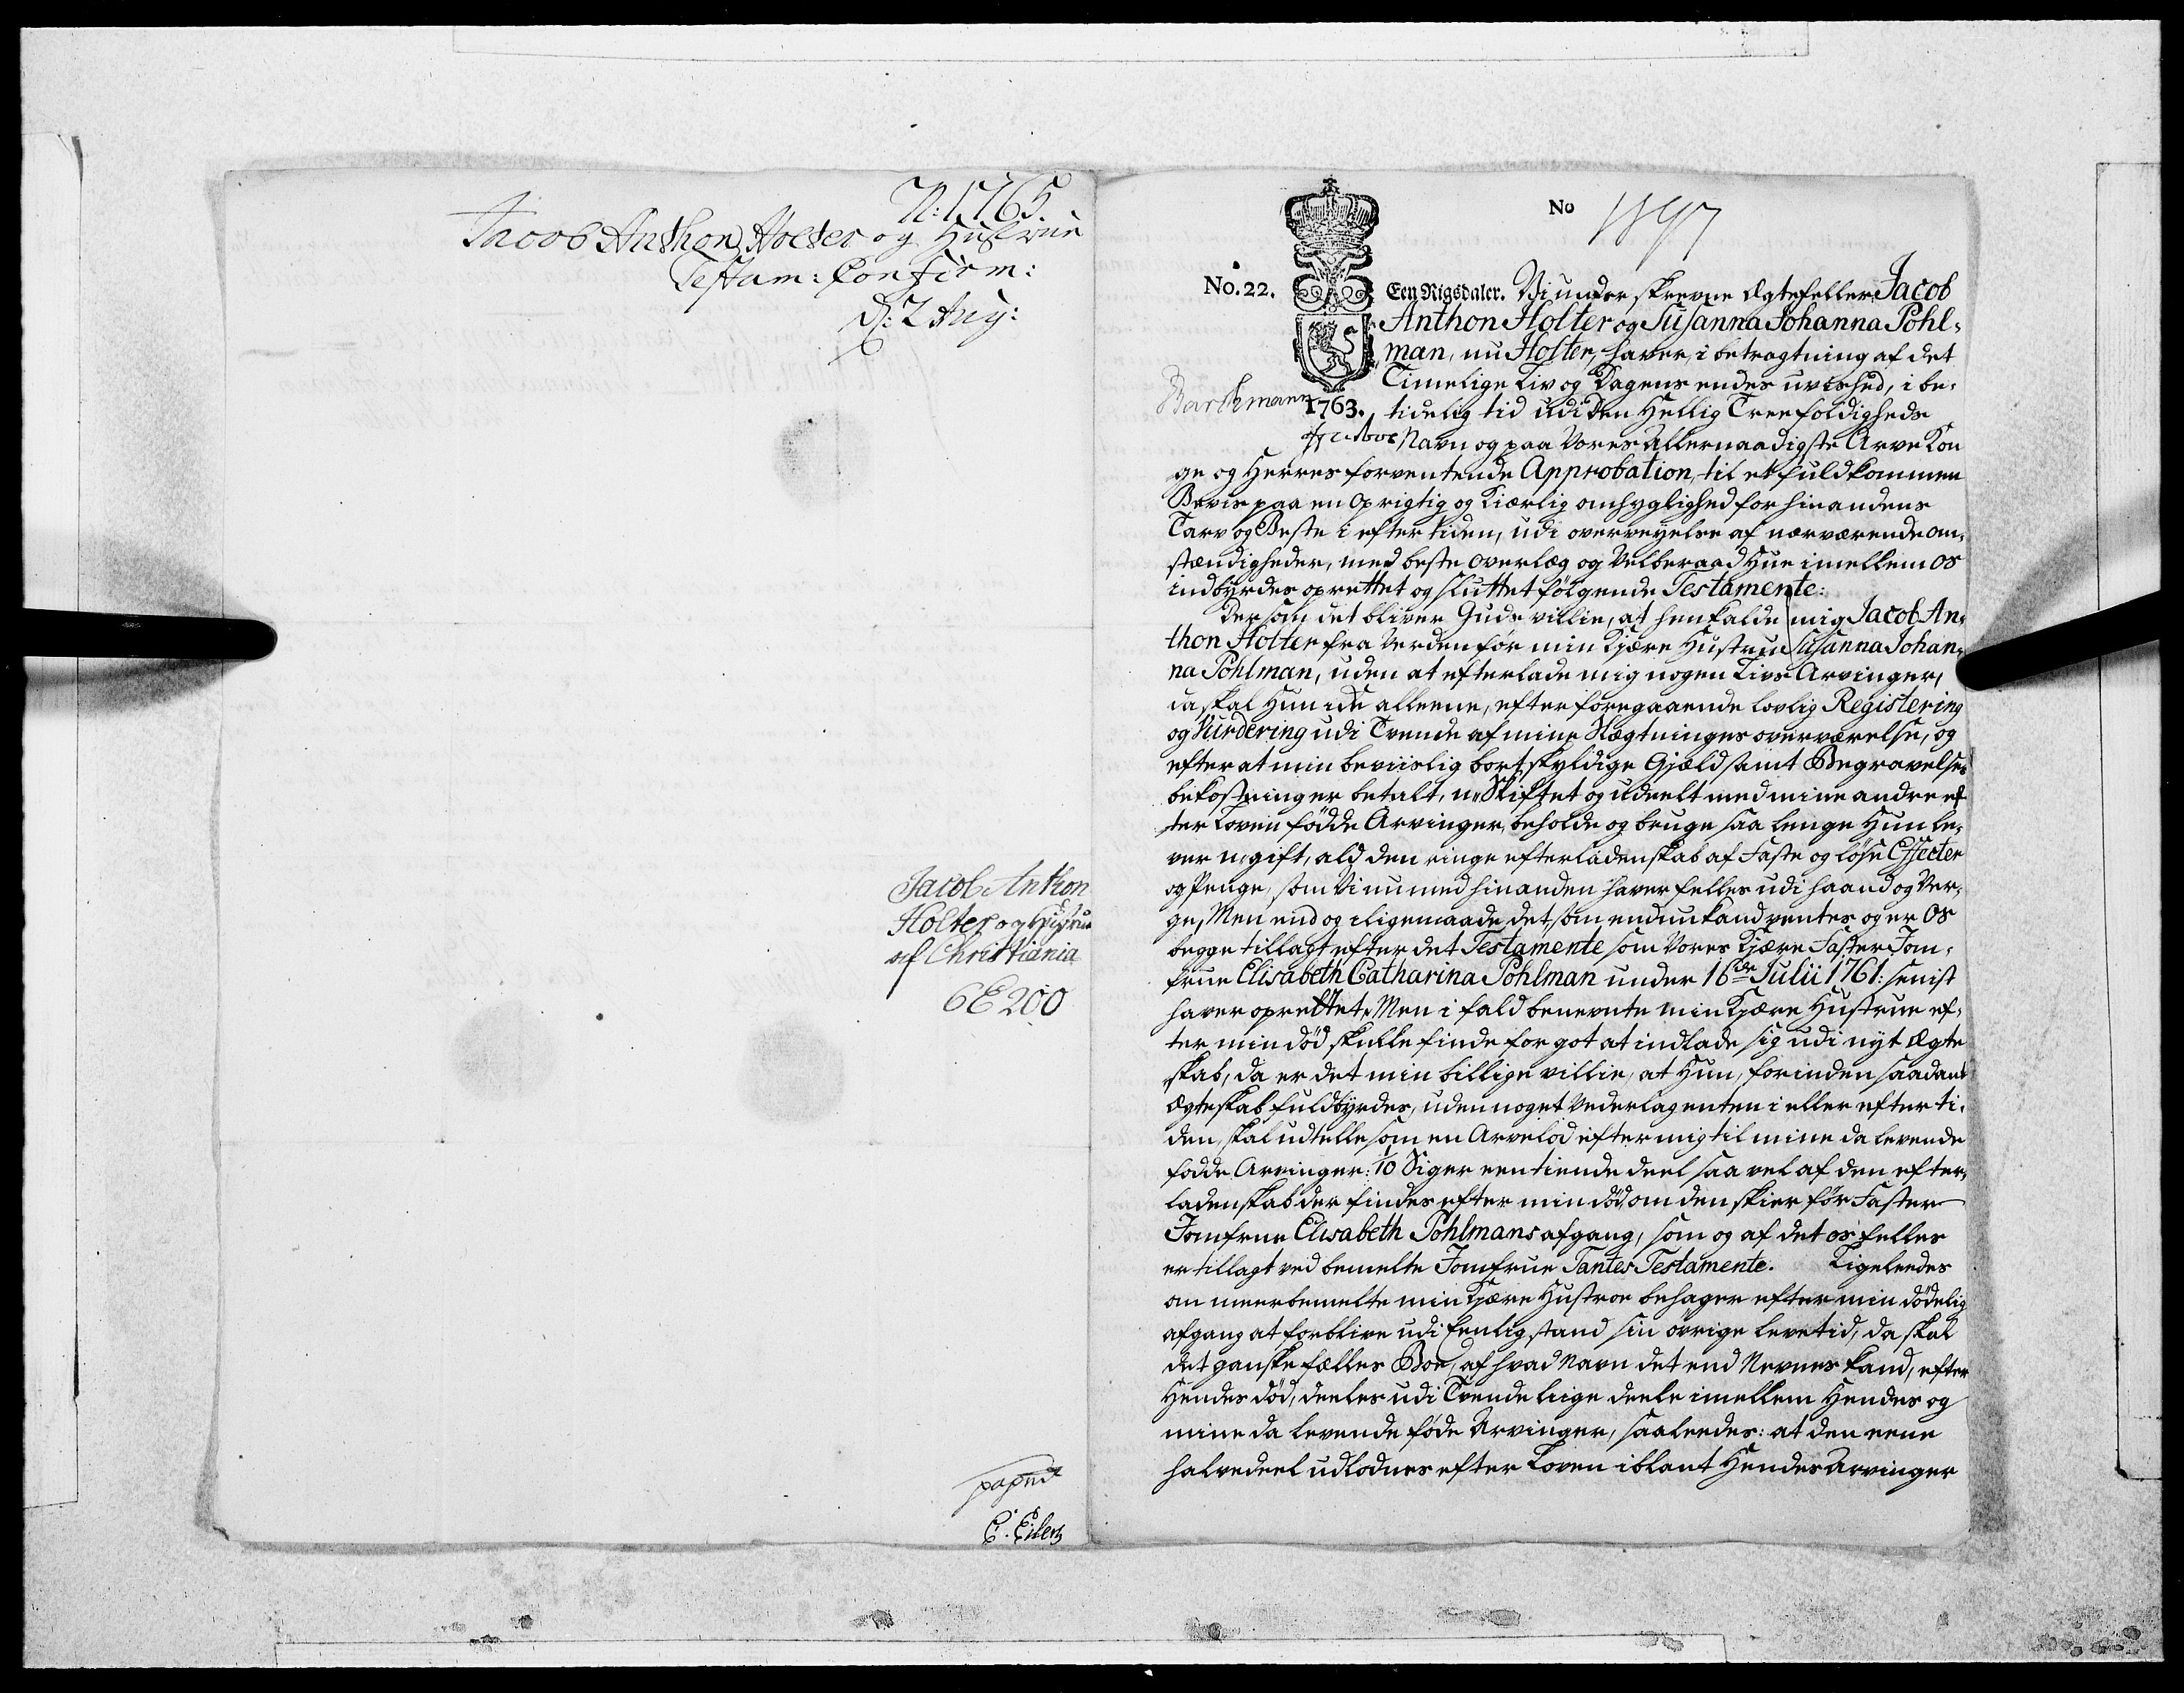 N: 1765.
Jacob Anthon Holter og Hustrue
Testam: Confirm:
d: 2 Aug:
Jacob Anthon
Holter og Hustrue
af Christiania
6E200
E. Eilert
No 1897
No. 22.
Een Rigsdaler. Vi underskrevne Ægtefeller Jacob
Anthon Holter og Susanna Johanna Pohl-
man, nu Holter, haver, i betragtning af det
Timelige Liv og Dagens endes uvished, i be-
Barthmann
1763. tidelig tid udi Den Hellig Treefoldigheds
Navn og paa Vores Allernaadigste Arve Kon
ge og Herres forventende Approbation, til et fuldkommen
Beviis paa en oprigtig og Kiærlig omhyglighed for hinandens
Tarv og Beste i eftertiden, udi overveyelse af nærværende om-
stændigheder, med beste overlæg og Velberaad Hue imellem os
indbyrdes oprettet og sluttet følgende Testamente:
Dersom det bliver Guds villie, at henkalde mig Jacob An-
thon Holter fra Verden før min Kjære Hustrue Susanna Johan-
na Pohlman, uden at efterlade mig nogen Livs Arvinger,
da skal Hun ide alleene, efter foregaaende lovlig Registering
og Vurdering udi Tvende af mine Slægtninges overværelse, og
efter at min beviislig bortskyldige Gjæld samt Begravelses
bekostning er betalt, u-Skiftet og udeelt med mine andre ef
ter Loven fødde Arvinger, beholde og bruge saa lenge Hun le-
ver u-gift, ald den ringe efterladenskab af Faste og løse Effecter
og Penge, som Vi nu med hinanden haver felles udi haand og Ver-
ge, Men end og iligemaade det, som endnu kand ventes og er Os
begge tillagt efter det Testamente som Vores Kjære Faster Jom-
frue Elisabeth Catharina Pohlman under 16de Julii 1761: senist
haver oprettet. Men i fald benevnte min Kjære Hustrue ef-
ter min død skulle finde for got at indlade sig udi nyt Ægte
skab, da er det min billige villie, at Hun, forinden saadant
Ægteskab fuldbyrdes, uden noget Vederlag enten i eller efter ti-
den, skal udtelle som en Arvelod efter mig til mine da levende
fødde Arvinger: 1/10 Siger een tiende deel saa vel af den efter-
ladenskab der findes efter min død, om den skier før Faster
Jomfrue Elisabeth Pohlmans afgang, som og af det os felles
er tillagt ved bemelte Jomfrue Tantes Testamente. Ligeleedes
om meerbemelte min Kjære Hustroe behager efter min dødelig
afgang at forblive udi Eenlig stand sin øvrige levetid, da skal
det ganske fælles Boe, af hvad Navn det end Nevnes kand, efter
Hendes død, deeles udi Tvende liige deele imellem Hendes og
mine da levende føde Arvinger, saaleedes: at den eene
halvedeel udlodnes efter Loven iblant Hendes Arvinger